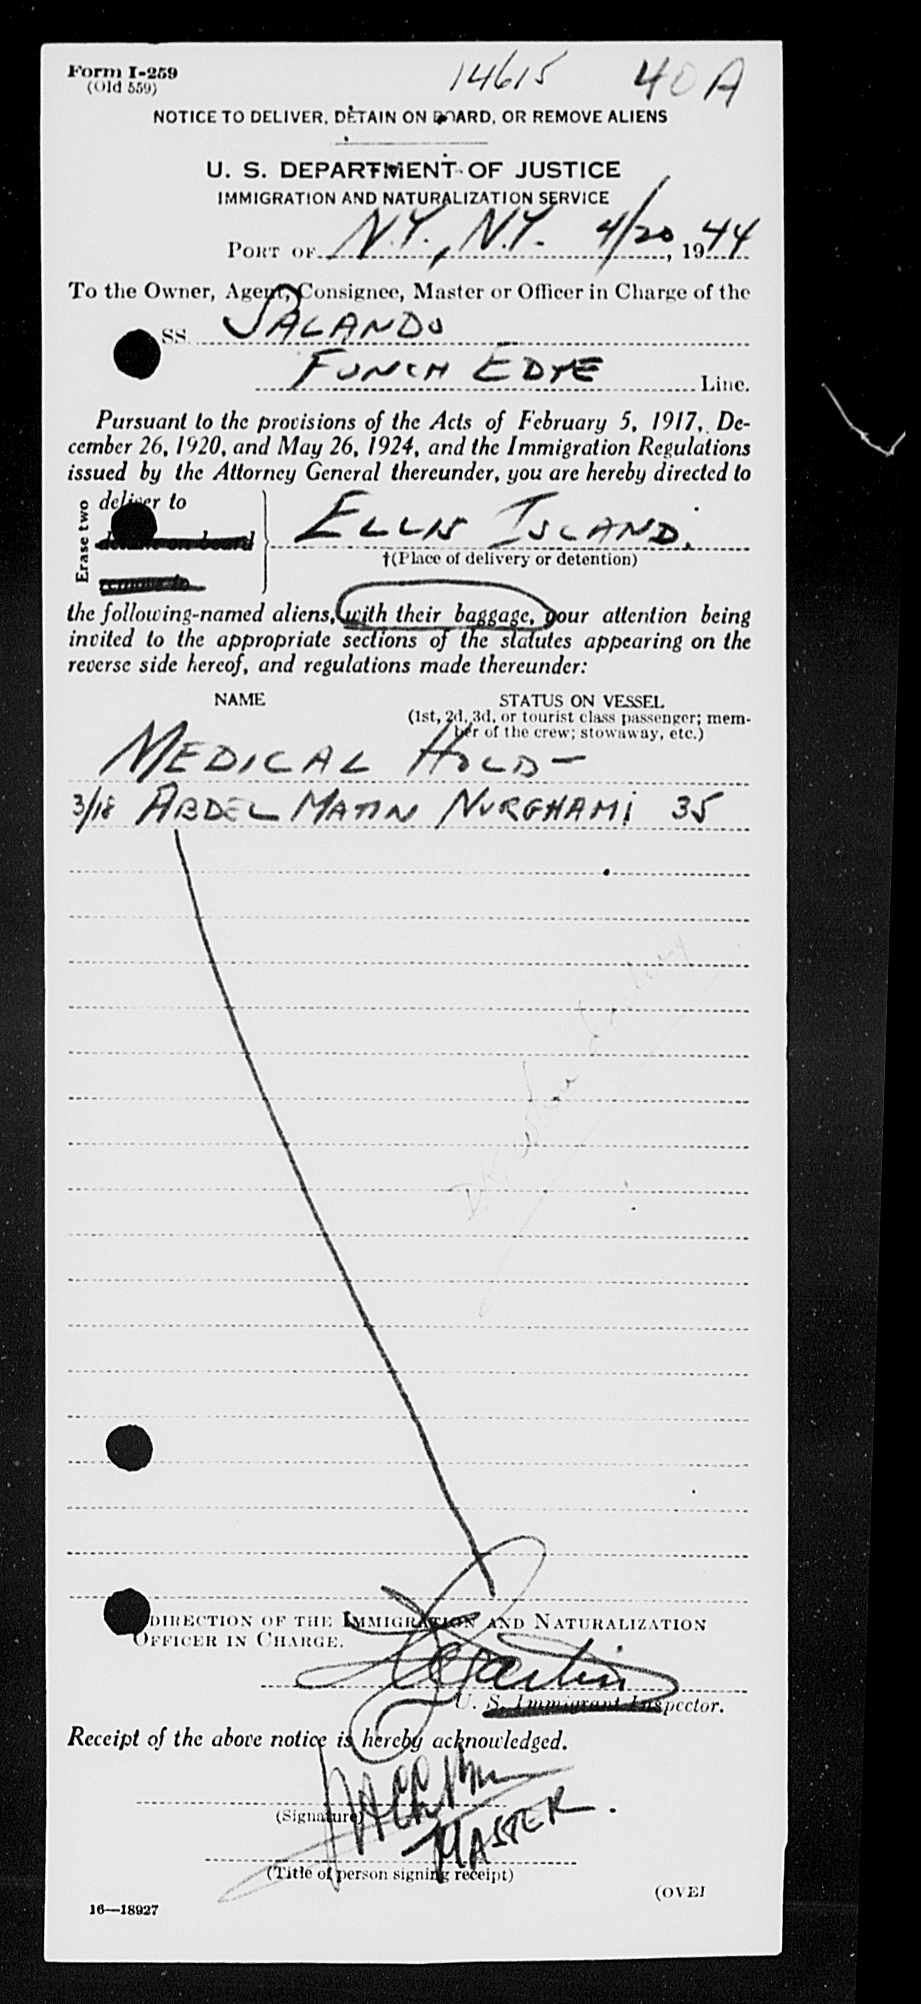 Form I-259
(Old 559)
14615 40 A
NOTICE TO DELIVER, DETAIN ON BOARD, OR REMOVE ALIENS
U. S. DEPARTMENT OF JUSTICE
IMMIGRATION AND NATURALIZATION SERVICE
PORT OF N.Y., N.Y. 4/20, 1944
To the Owner, Agent, Consignee, Master or Officer in Charge of the
SS. SALANDO
FUNCH EDYE Line.
Pursuant to the provisions of the Acts of February 5, 1917, De-
cember 26, 1920, and May 26, 1924, and the Immigration Regulations
issued by the Attorney General thereunder, you are hereby directed to
Erase two
deliver to
detain on board
remove to
ELLIS ISLAND.
†(Place of delivery or detention)
the following-named aliens, with their baggage, your attention being
invited to the appropriate sections of the statutes appearing on the
reverse side hereof, and regulations made thereunder:
NAME STATUS ON VESSEL
(1st, 2d, 3d, or tourist class passenger; mem-
ber of the crew; stowaway, etc.)
MEDICAL HOLD-
3/18 ABDEL MATIN NURGHAMI 35
DIRECTION OF THE IMMIGRATION AND NATURALIZATION
OFFICER IN CHARGE.
U. S. Immigrant Inspector.
Receipt of the above notice is hereby acknowledged.
(Signature)
MASTER.
(Title of person signing receipt)
(OVE
16—18927